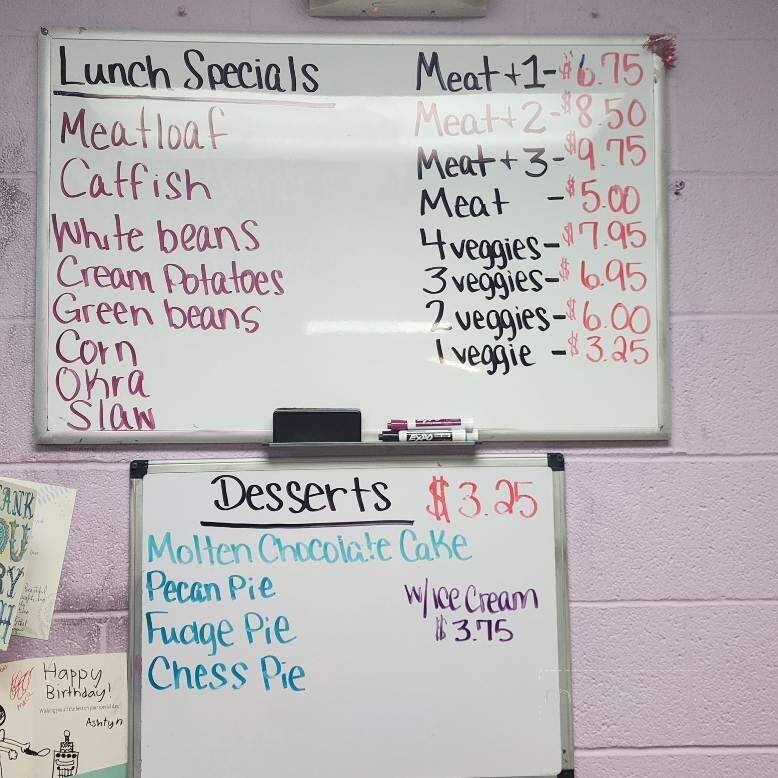 Lunch Specials
Meatloaf
Catfish
White beans
Cream Potatoes
Green beans
Corn
Okra
Slaw
Meat+1-$6.75
Meat+2-$8.50
Meat+3-$9.75
Meat -$5.00
4 veggies-$7.95
3 veggies-$6.95
2 veggies-$6.00
1 veggie -$3.25
EXPO
Desserts $3.25
Molten Chocolate Cake
Pecan Pie
Fudge Pie
Chess Pie
w/ice Cream
$3.75
Happy
Birthday!
Ashtyn